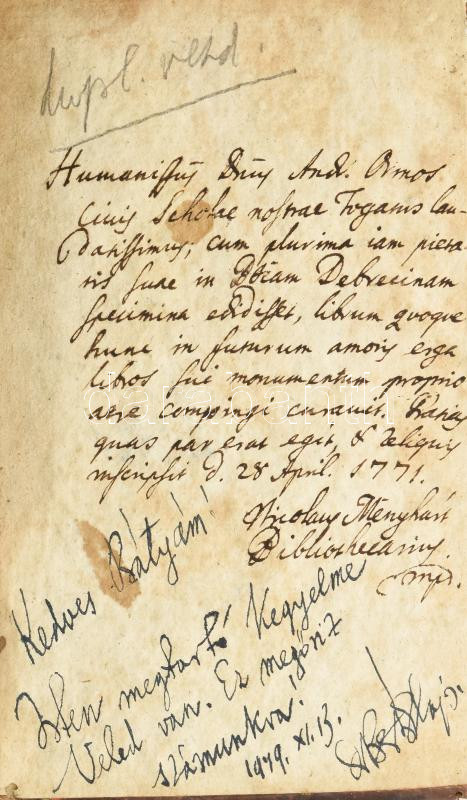 dupl. vend.
Humanissus Dnus And. Ormos
Civis Scholae nostrae Togatus lau-
datissimus, cum plurima iam pieta-
tis suae in Bbcam Debrecinam
specimina edidisset, librum quoque
hunc in futurum amoris erga
libros sui monumentum proprio
aere compingi curavit. Gratias
quas par erat egit, & reliquis
inscripsit d. 28 April. 1771.
Nicolaus Menyhárt
Bibliothecarius
mp.
Kedves Bátyám!
Isten megtartó Kegyelme
Veled van. Ez megőriz
számunkra!
1979. XI. 13.